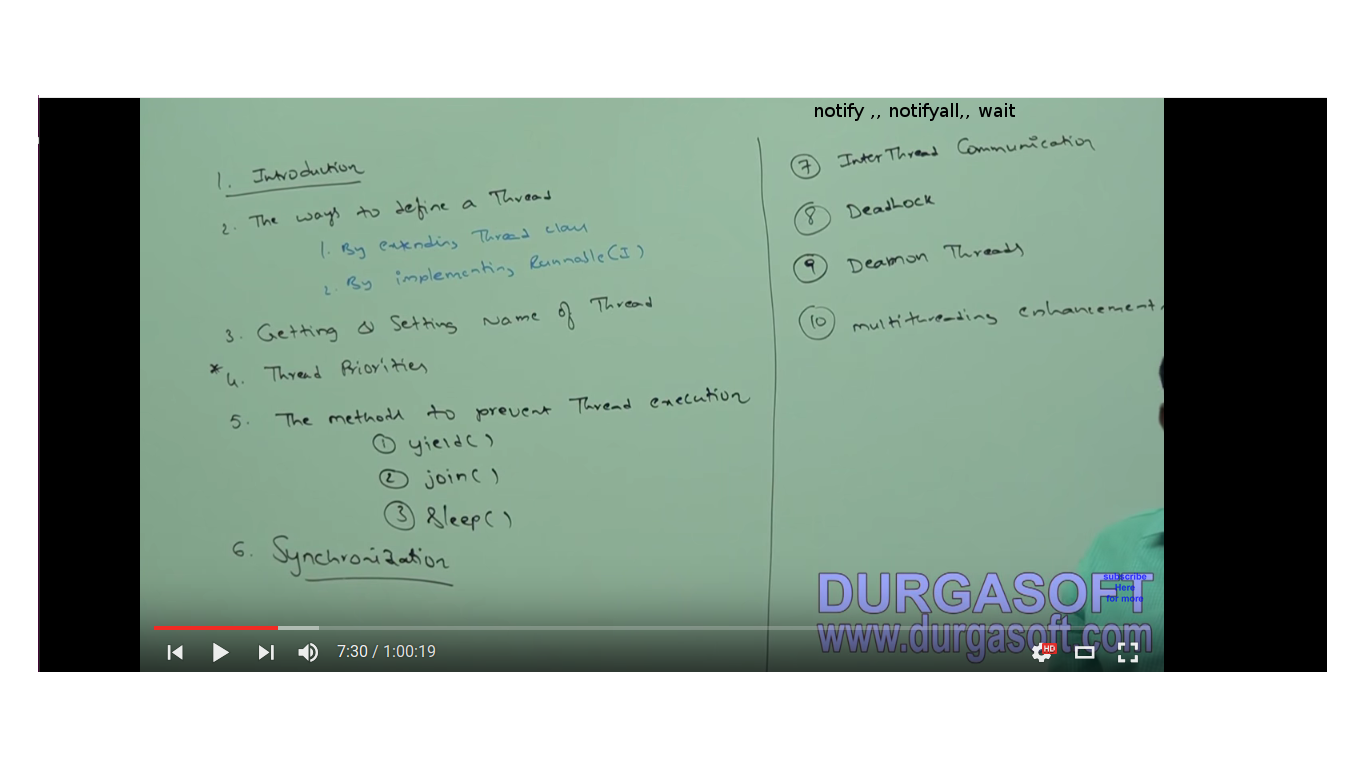 notify ,, notifyall,, wait
1. Introduction
2. The ways to define a Thread
1. By extending Thread class
2. By implementing Runnable(I)
3. Getting & Setting Name of Thread
* 4. Thread Priorities
5. The methods to prevent Thread execution
① yield( )
② join( )
③ Sleep( )
6. Synchronization
⑦ InterThread Communication
⑧ DeadLock
⑨ Deamon Threads
⑩ multithreading enhancement
DURGASOFT
www.durgasoft.com
subscribe
Here
for more
7:30 / 1:00:19
HD